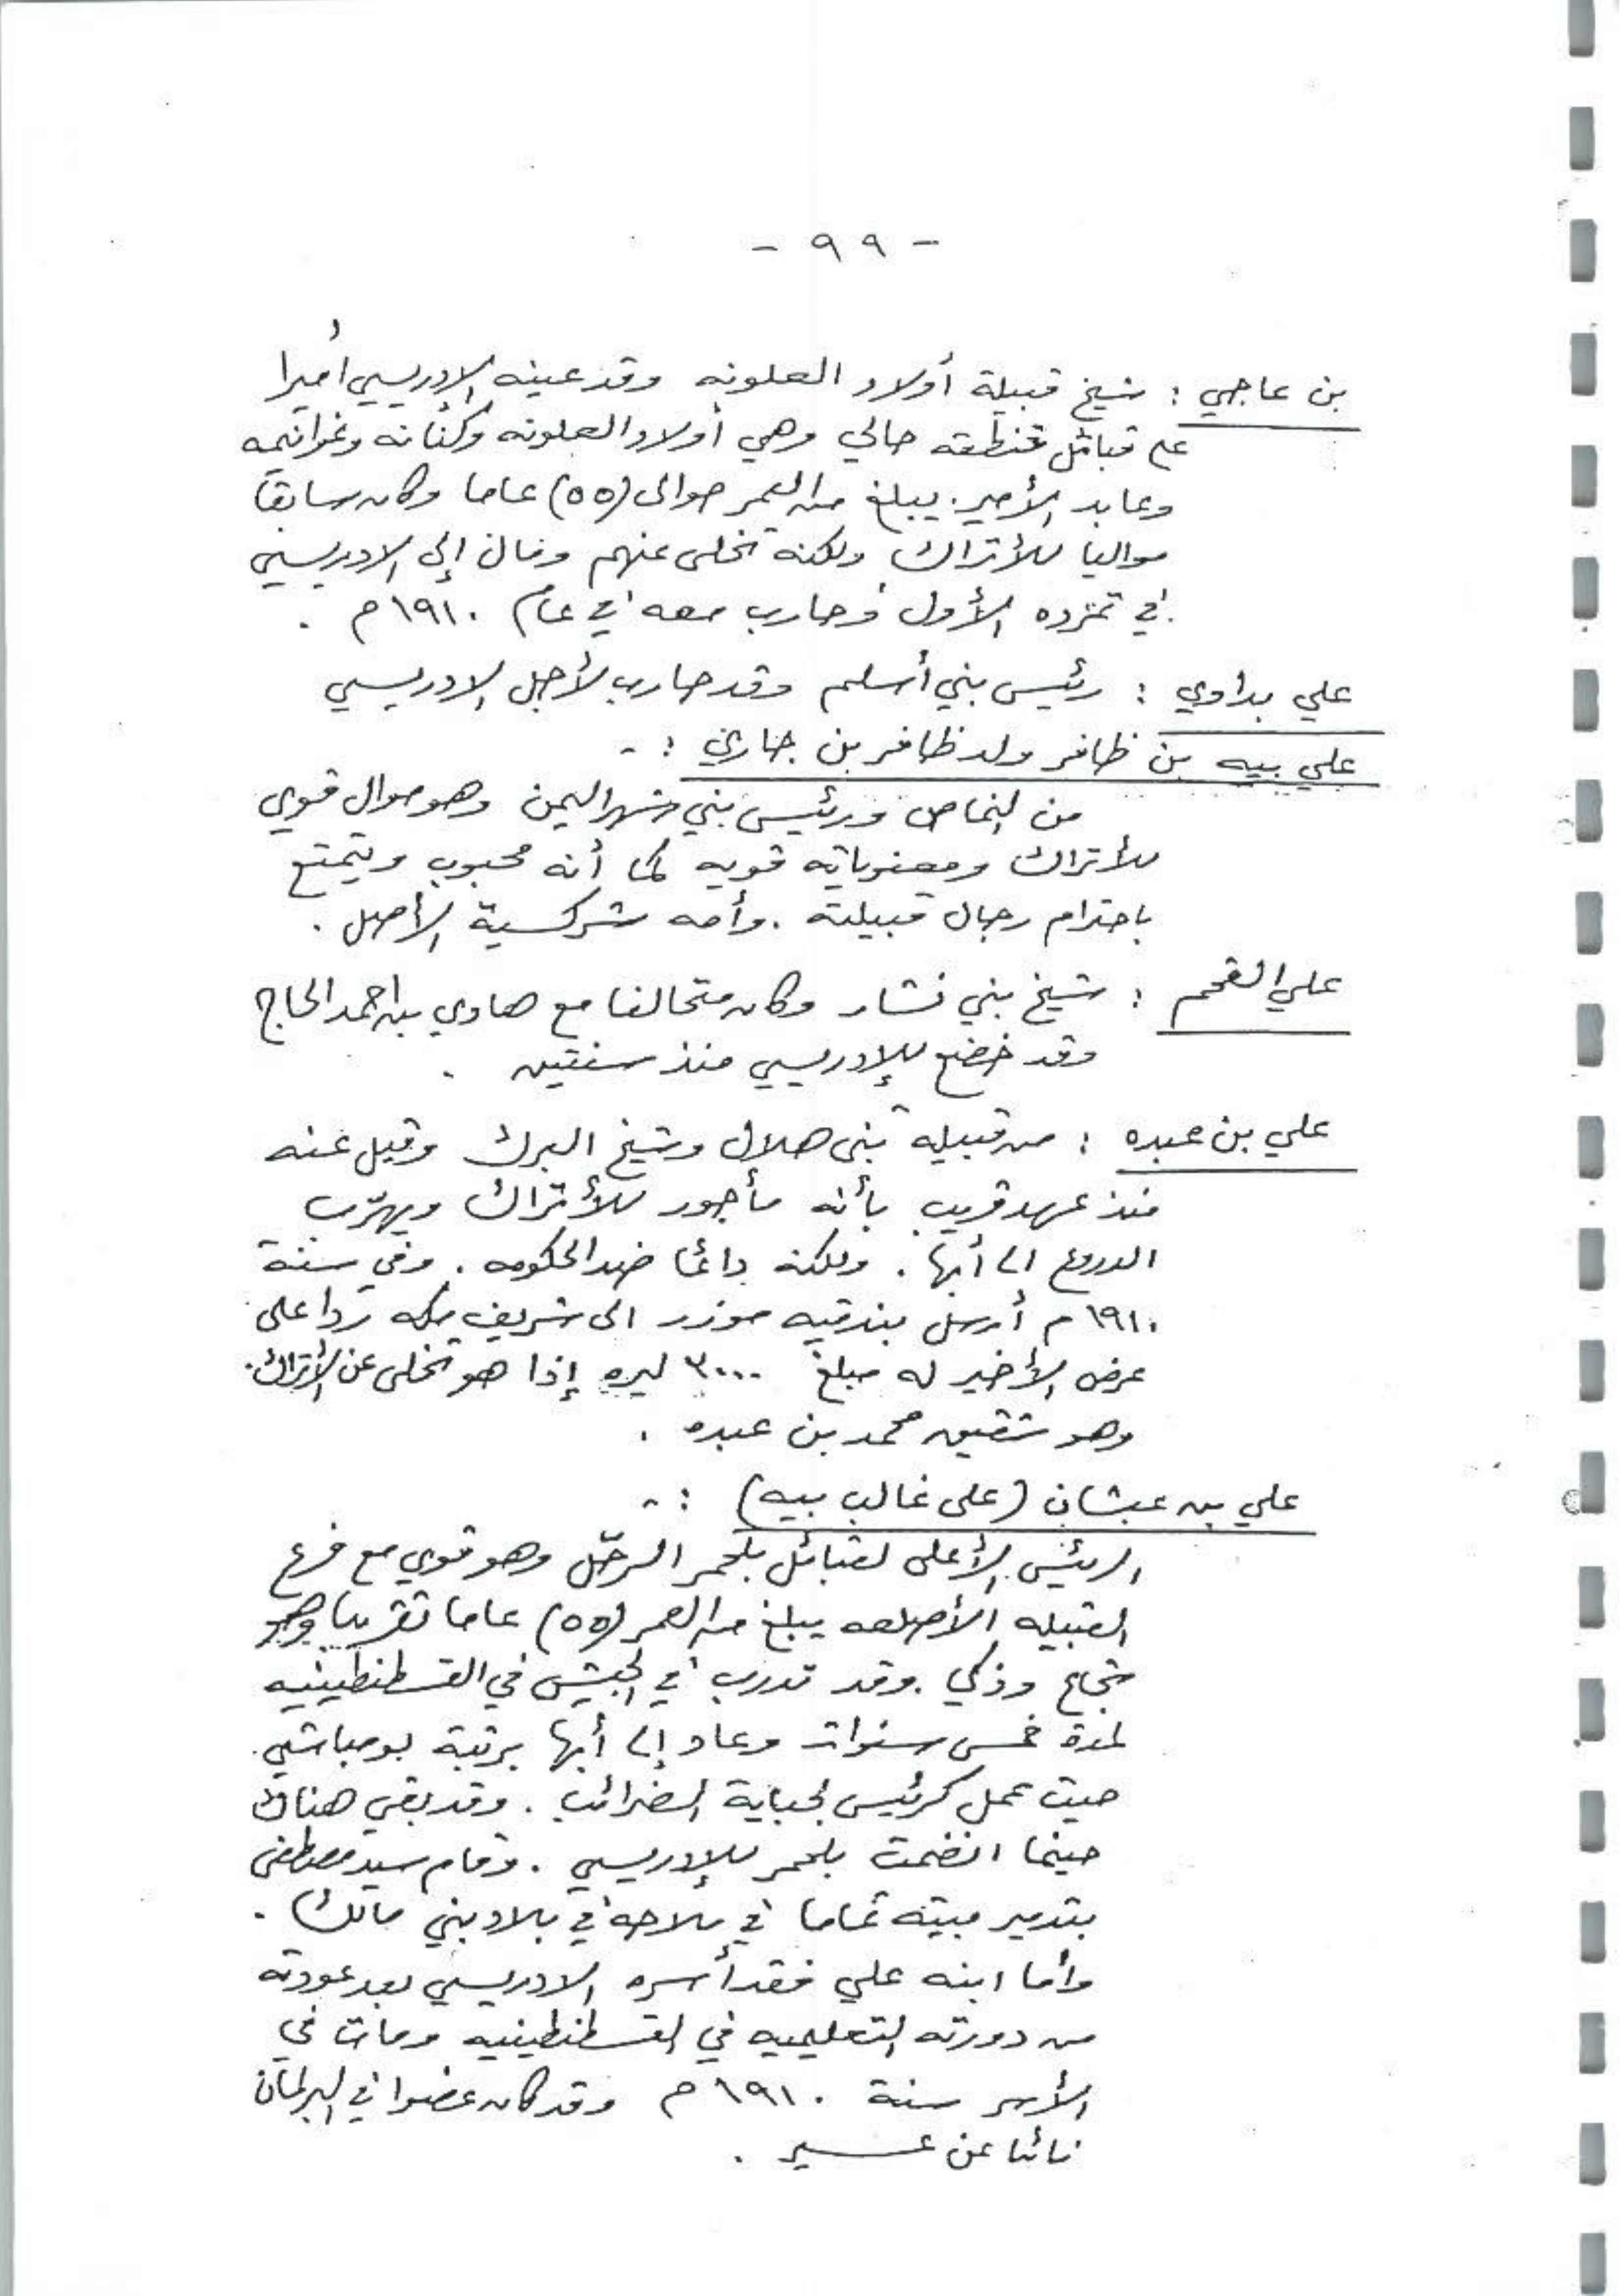 - ٩٩ -
بن عاجي : شيخ قبيلة أولاد العلونه وقد عينه الإدريسي أميرا
على قبائل منطقة حالي وهي أولاد العلونه وكنانه وغوانمه
وعابد الأمير . يبلغ من العمر حوالى (٥٥) عاما وكان سابقا
مواليا للأتراك ولكنه تخلى عنهم ومال إلى الادريسي
في تمرده الأول وحارب معه في عام ١٩١٠ م .
علي بداوي : رئيس بني أسلم وقد حارب لأجل الادريسي
علي بيه بن ظافر ولد ظافر بن جاري : -
من النماص ورئيس بني شهر اليمن وهو موال قوي
للأتراك ومعنوياته قويه كما أنه محبوب ويتمتع
باحترام رجال قبيلته . وأمه شركسية الأصل .
علي القحم : شيخ بني نشار وكان متحالفا مع هادي بن احمد الحاج
وقد خضع للإدريسي منذ سنتين .
علي بن عبده : من قبيله بنى هلال وشيخ البرك وقيل عنه
منذ عهد قريب بأنه مأجور للأتراك ويهرّب
الدروع الى أبها . ولكنه دائما ضد الحكومه . وفي سنة
١٩١٠ م أرسل بندقيه موزر الى شريف مكه ردا على
عرض الأخير له مبلغ ٣٠٠٠ ليره إذا هو تخلى عن الأتراك .
وهو شقيق محمد بن عبده .
علي بن عبشان (على غالب بيه) : -
الرئيس الأعلى لقبائل بلحمر الرحّل وهو قوي مع فرع
القبيله الأصلعه يبلغ من العمر (٥٥) عاما تقريبا وهو
شجاع وذكي . وقد تدرب في الجيش في القسطنطينيه
لمدة خمس سنوات وعاد إلى أبها برتبة يوصباشي .
حيث عمل كرئيس لجباية الضرائب . وقد بقي هناك
حينما انضمت بلحمر للإدريسي . وقام سيد مصطفى
بتدمير بيته تماما في ملاحه في بلاد بني مالك .
وأما ابنه علي فقد أسره الادريسي بعد عودته
من دورته التعليميه في القسطنطينيه ومات في
الأسر سنة ١٩١٠ م وقد كان عضوا في البرلمان
نائبا عن عسير .